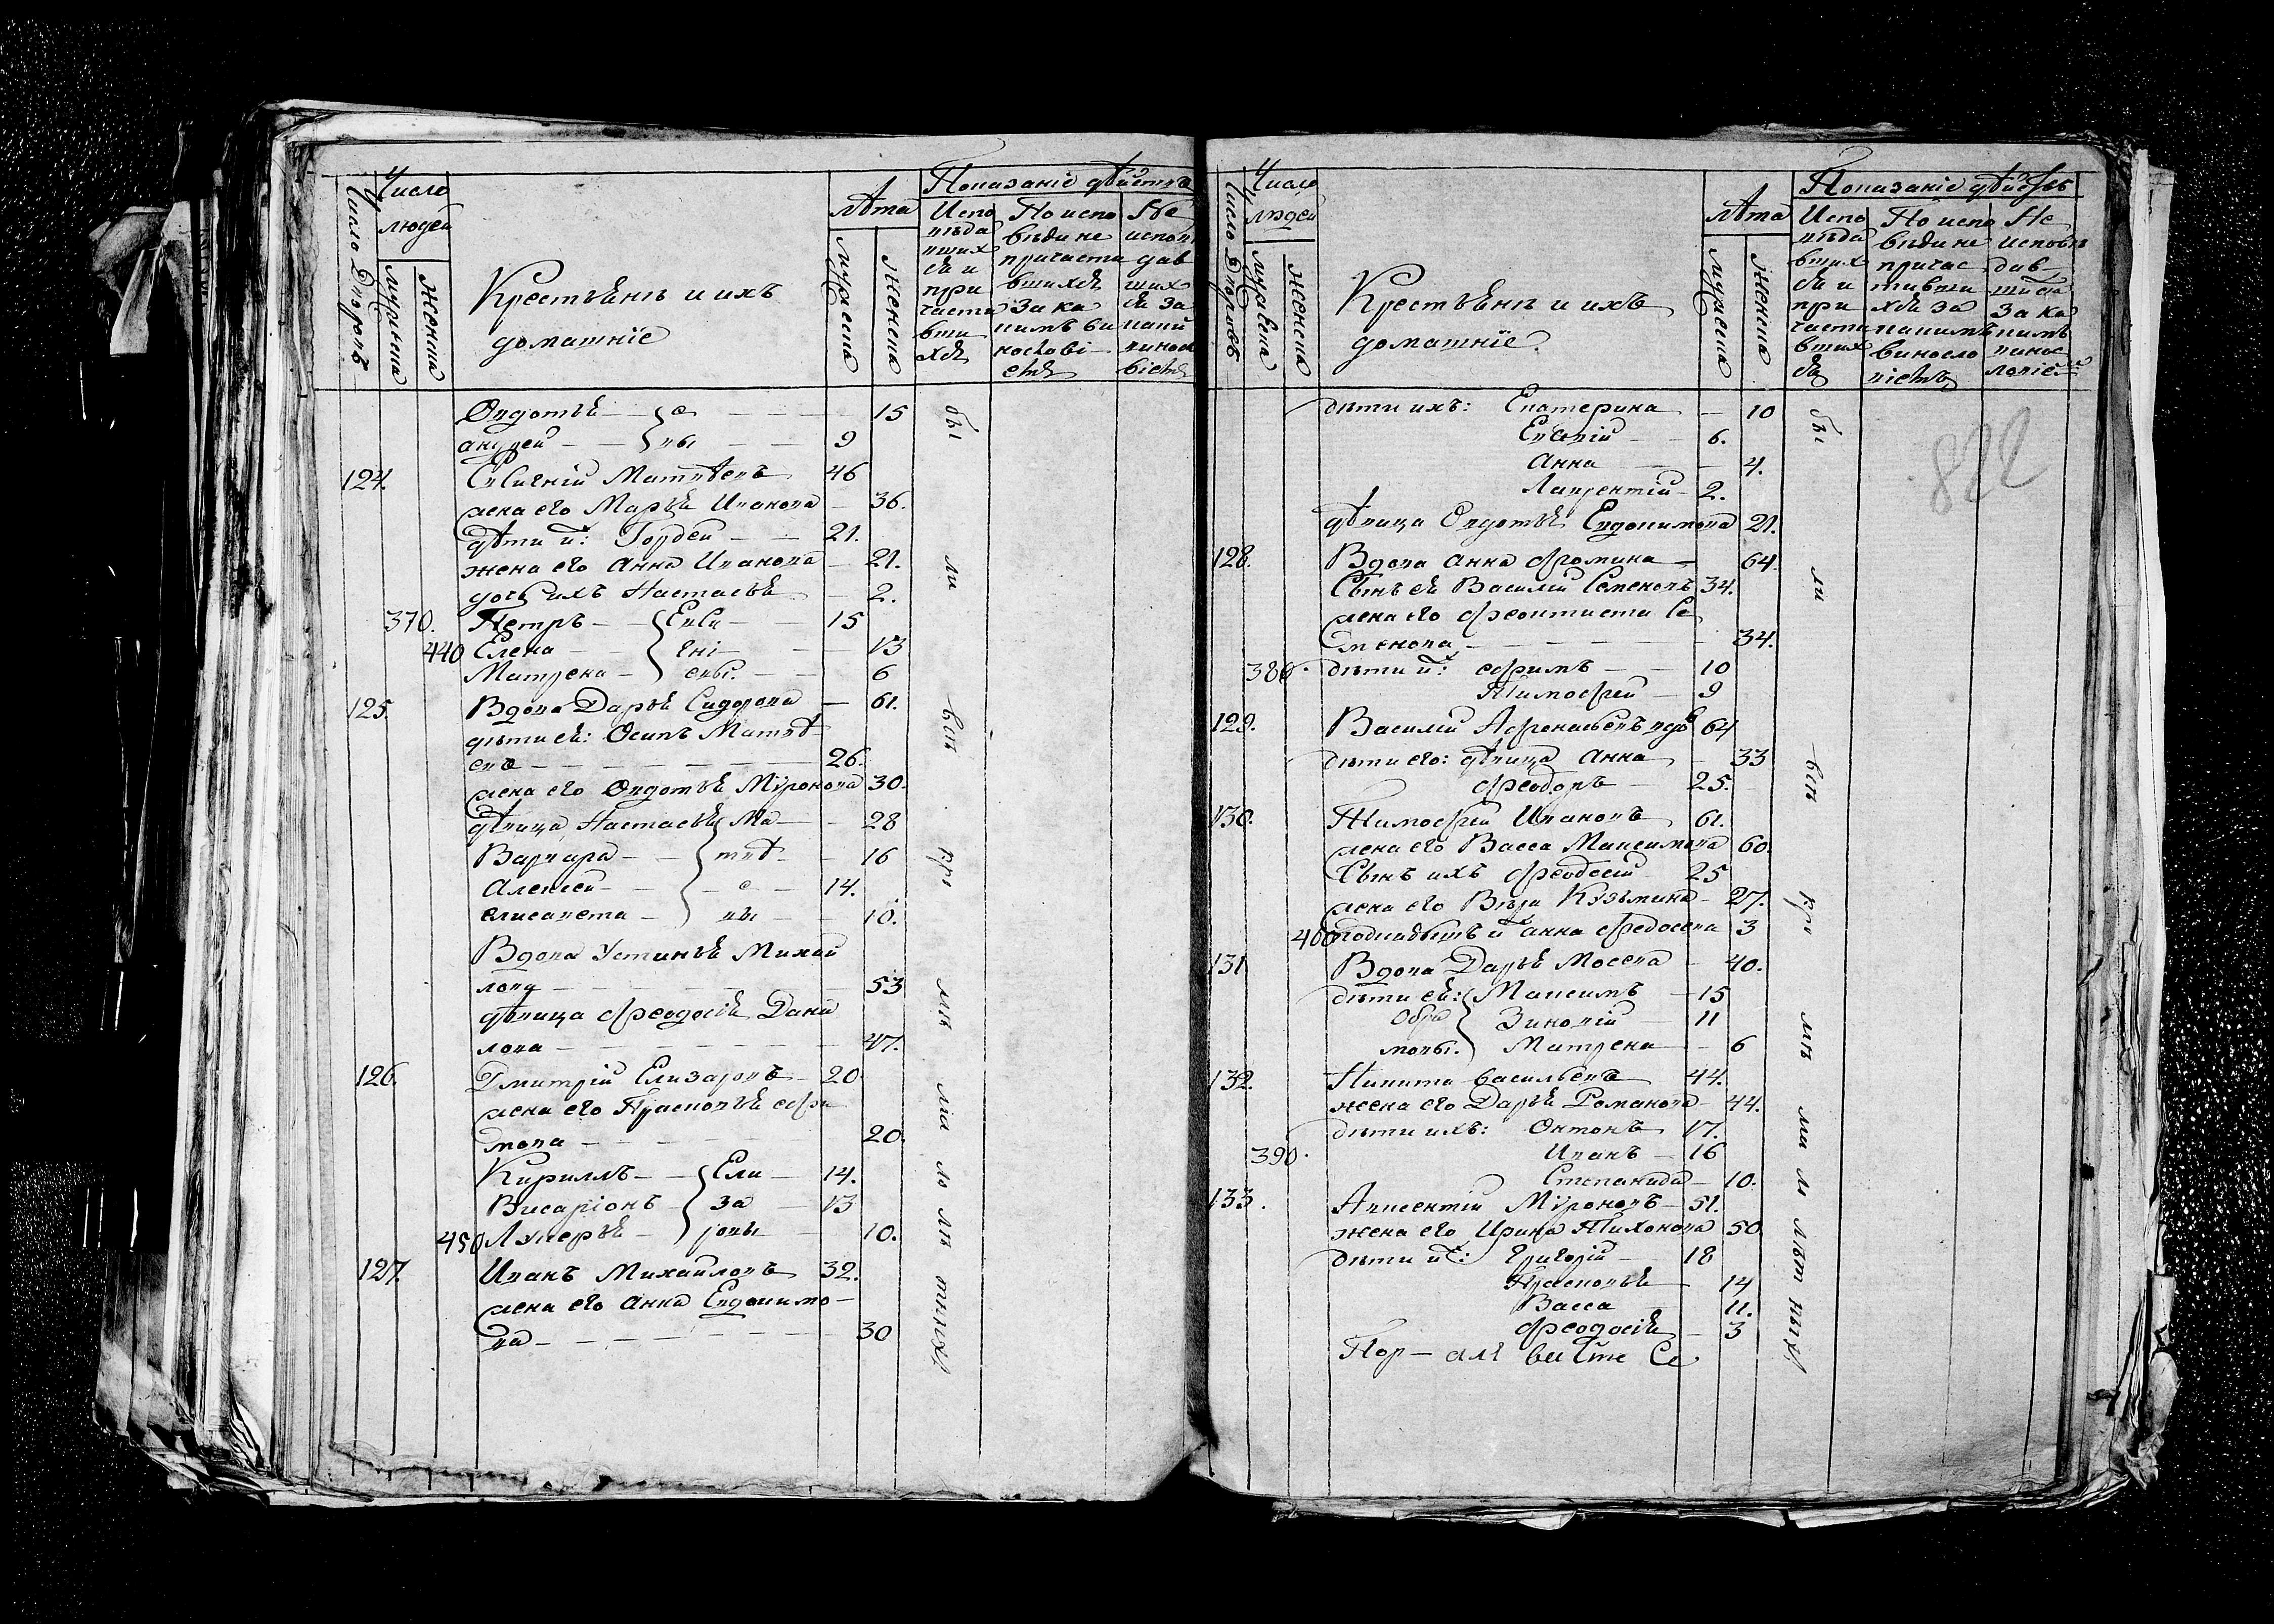 Число Дворовъ
Число людей
мужеска
женска
Крестьянъ и ихъ
домашніе
лѣта
мужеска
женска
Показаніе дѣйствъ
Испо
вѣда
вших
ся и
при
части
вши
хся
По испо
вѣди не
причасти
вшихся
за ка
кимъ ви
нослові
емъ
Не
испов
дав
ших
ся за
каки
винос
віемъ
Овдотья — с — 15
андрей — вы — 9
124. Евсигній Матвѣевъ 46
жена его Марья Иванова — 36.
дѣти их: Гордей — 21.
жена его Анна Иванова — 21.
дочь ихъ Настасья — 2.
370. Петръ — Евси — 15
440 Елена — гні — 13
Матрена — евы. — 6
125. Вдова Дарья Сидорова — 61.
дѣти ея: Осипъ Матвѣ-
евъ — 26.
жена его Овдотья Мѵронова 30.
дѣвица Настасья Ма — 28
Варвара — твѣ — 16
Алексей — е — 14.
елисавета — вы — 10.
Вдова Устинья Михай
лова — 53
дѣвица Феодосья Дани
лова — 47.
126. Дмитрій Елизаровъ — 20
жена его Прасковья ефи
мова — 20.
Кириллъ — Ели — 14.
Висаріонъ — за — 13
450 Лукерья — ровы — 10.
127. Иванъ Михайловъ 32.
жена его Анна Евдокимо-
ва — 30
бы
ли
всѣ
кро
мѣ
ма
ло
лѣ
тныхъ
Число Дворовъ
Число
людей
мужеска
женска
Крестьянъ и ихъ
домашніе.
лѣта
мужеска
женска
Показаніе дѣйствъ
Испо
вѣда
вших
ся и
при
части
вших
ся
По испо
вѣди не
причас
тивши
хся за
какимъ
виносло
віемъ
Не
исповѣ
дав
шися
за ка
кимъ
винос
ловіемъ
822
дѣти ихъ: Екатерина — 10
Евсевій — 6.
Анна — 4.
Лаврентій — 2.
дѣвица Овдотья Евдокимова 21.
128. Вдова Анна Фомина — 64.
Сынъ ея Василій Семеновъ 34.
жена его Феоктиста Се
менова — 34.
380. дѣти их: ефимъ — 10
Тимофей — 9
129. Василій Афонасьевъ вдов 64
дѣти его: дѣвица Анна — 33
Феодоръ — 25.
130. Тимофей Ивановъ 61.
жена его Васса Максимова 60.
Сынъ ихъ Феодосій 25
жена его Вѣра Кузьмина — 27.
400 анна Федосева 3
131 Вдова Дарья Мосева — 40.
дѣти ея: Максимъ — 15
Обра Зиновій — 11
мовы. Матрена — 6
132. Никита васильевъ 44.
жена его Дарья Романова — 44.
дѣти ихъ: Онтонъ 17.
390. Иванъ — 16
Степанида — 10.
133. Авксентій Мѵроновъ — 51.
жена его Ирина Тихонова 50
дѣти их: Григорій — 18
Прасковья 14
Васса 11.
Феодосія — 3
бы
ли
всѣ
кро
мѣ
ма
ло
лѣт
ныхъ